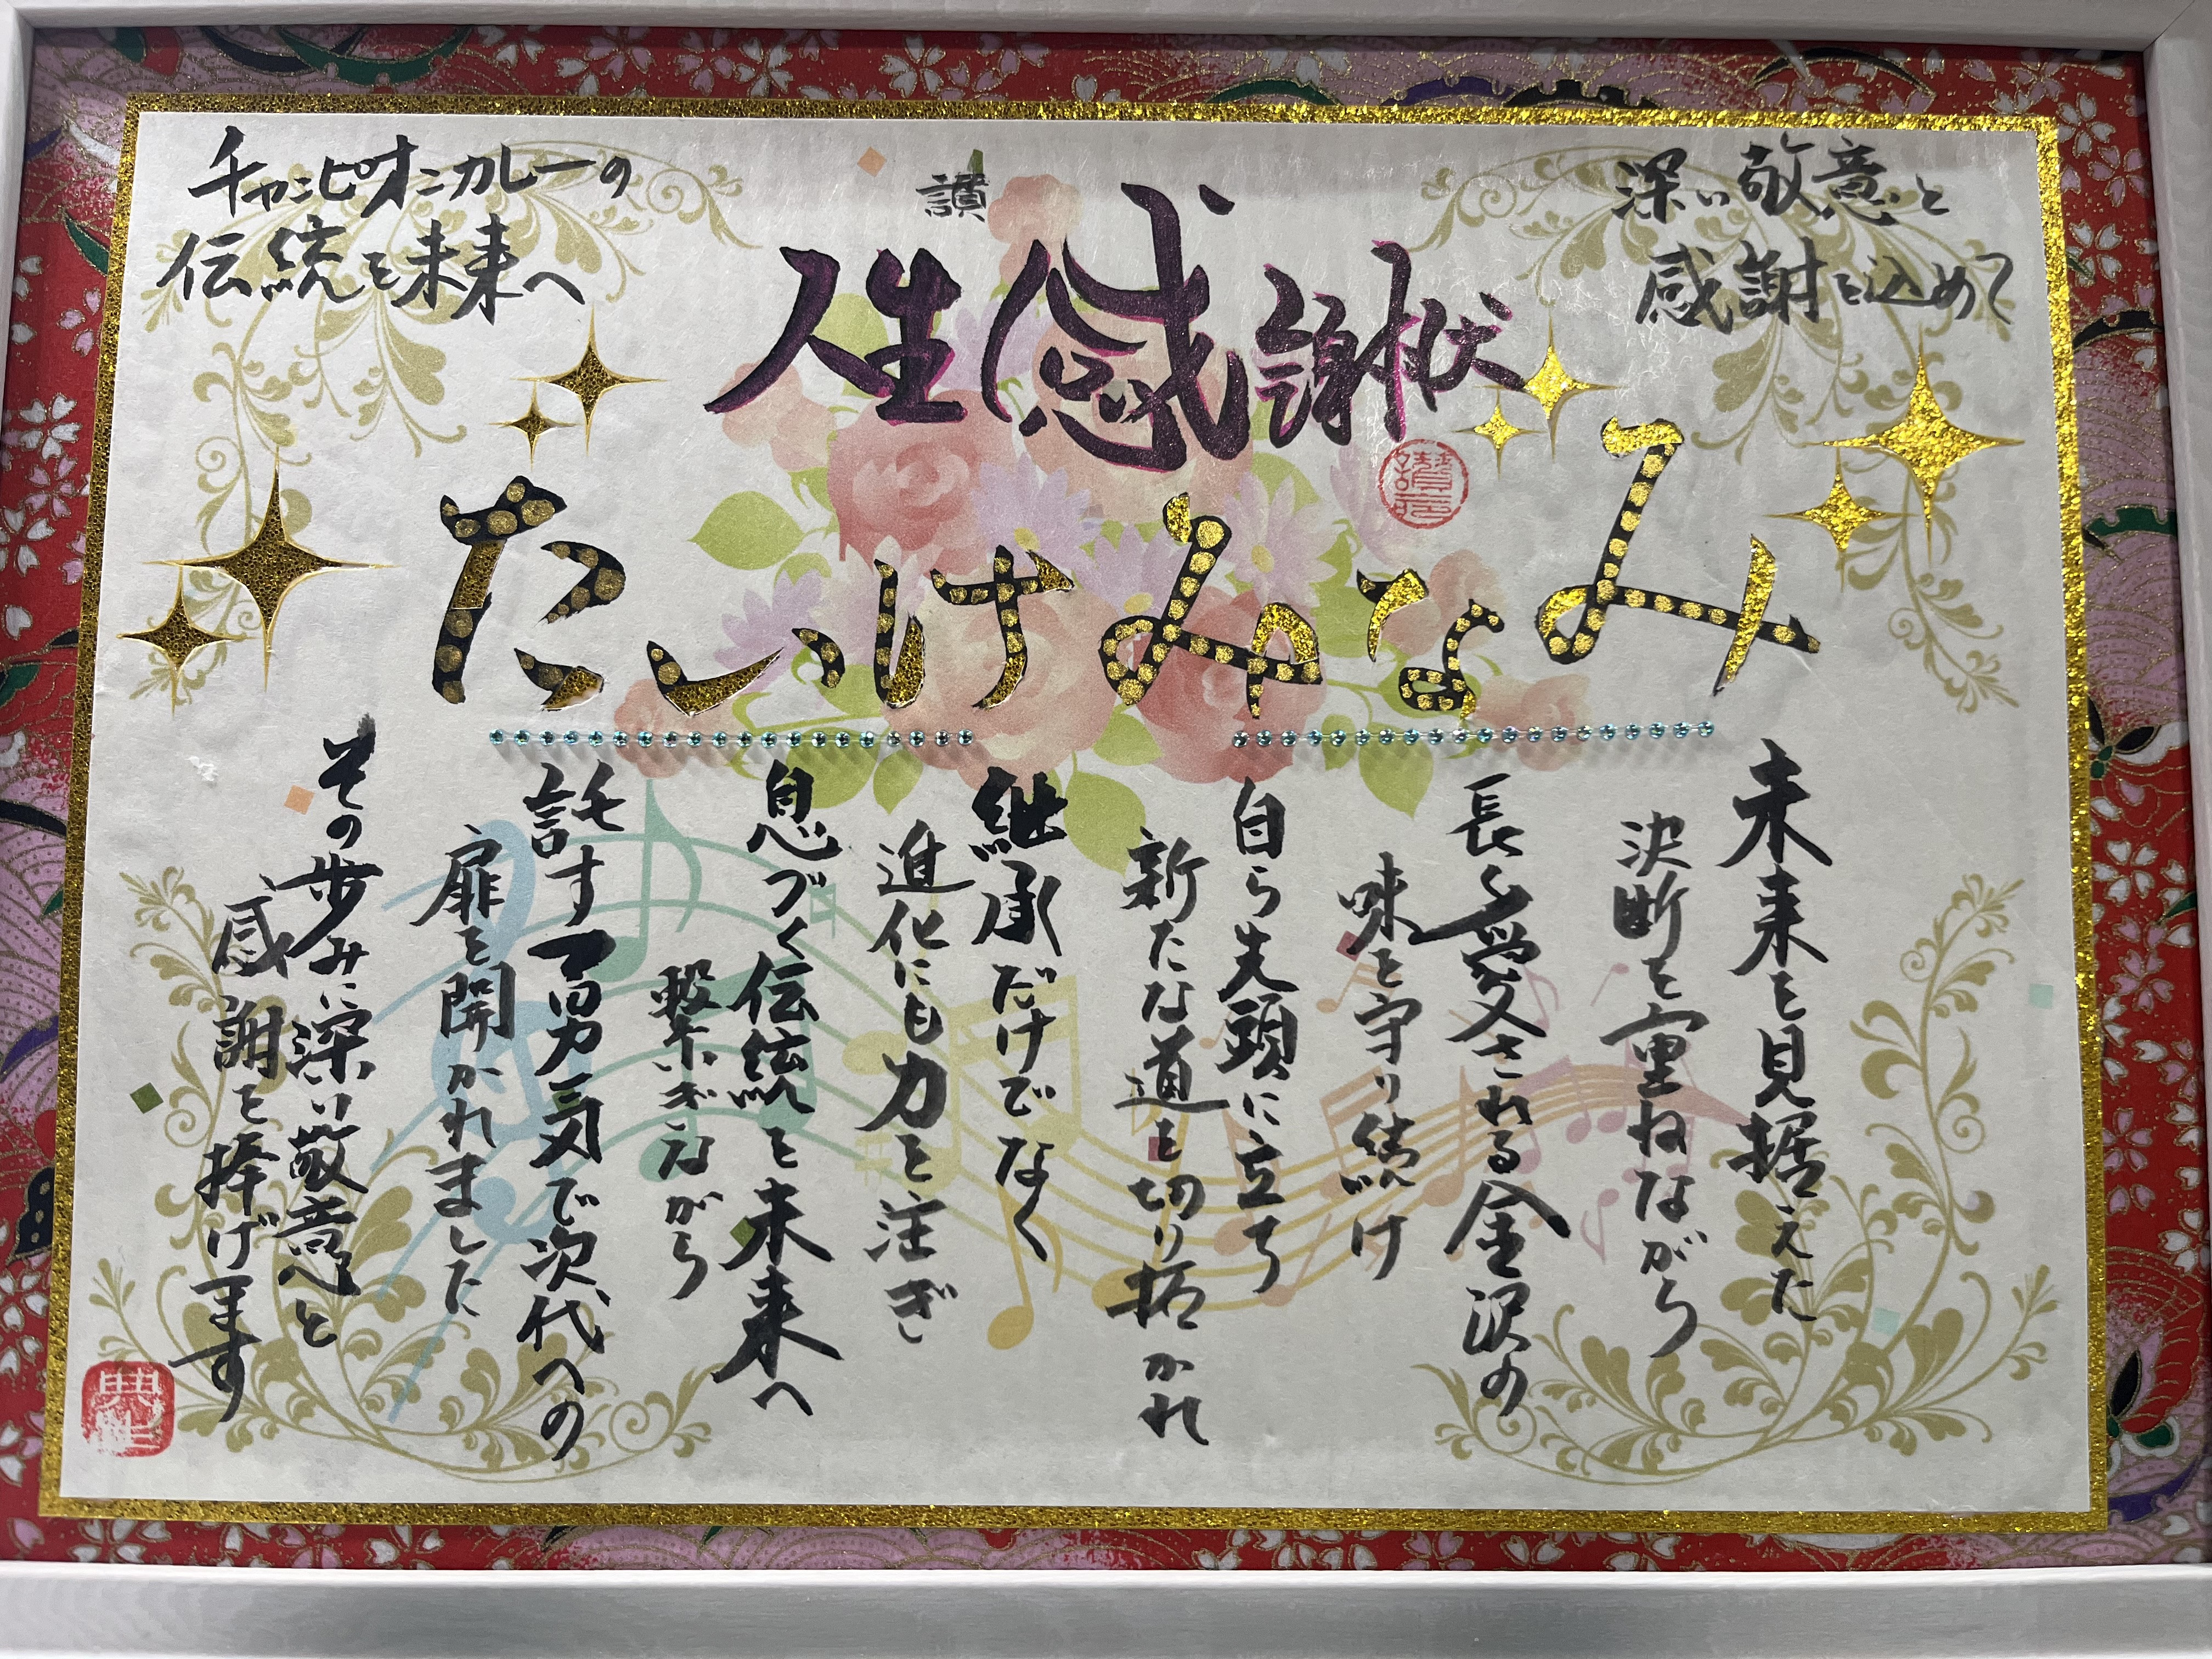 深い敬意と
感謝を込めて
讃
人生感謝状
チャンピオンカレーの
伝統を未来へ
たいけみなみ
未来を見据えた
決断を重ねながら
長く愛される金沢の
味を守り続け
自ら先頭に立ち
新たな道を切り拓かれ
継承だけでなく
進化にも力を注ぎ
息づく伝統を未来へ
繋ぎながら
託す勇気で次代への
扉を開かれました
その歩みに深い敬意と
感謝を捧げます